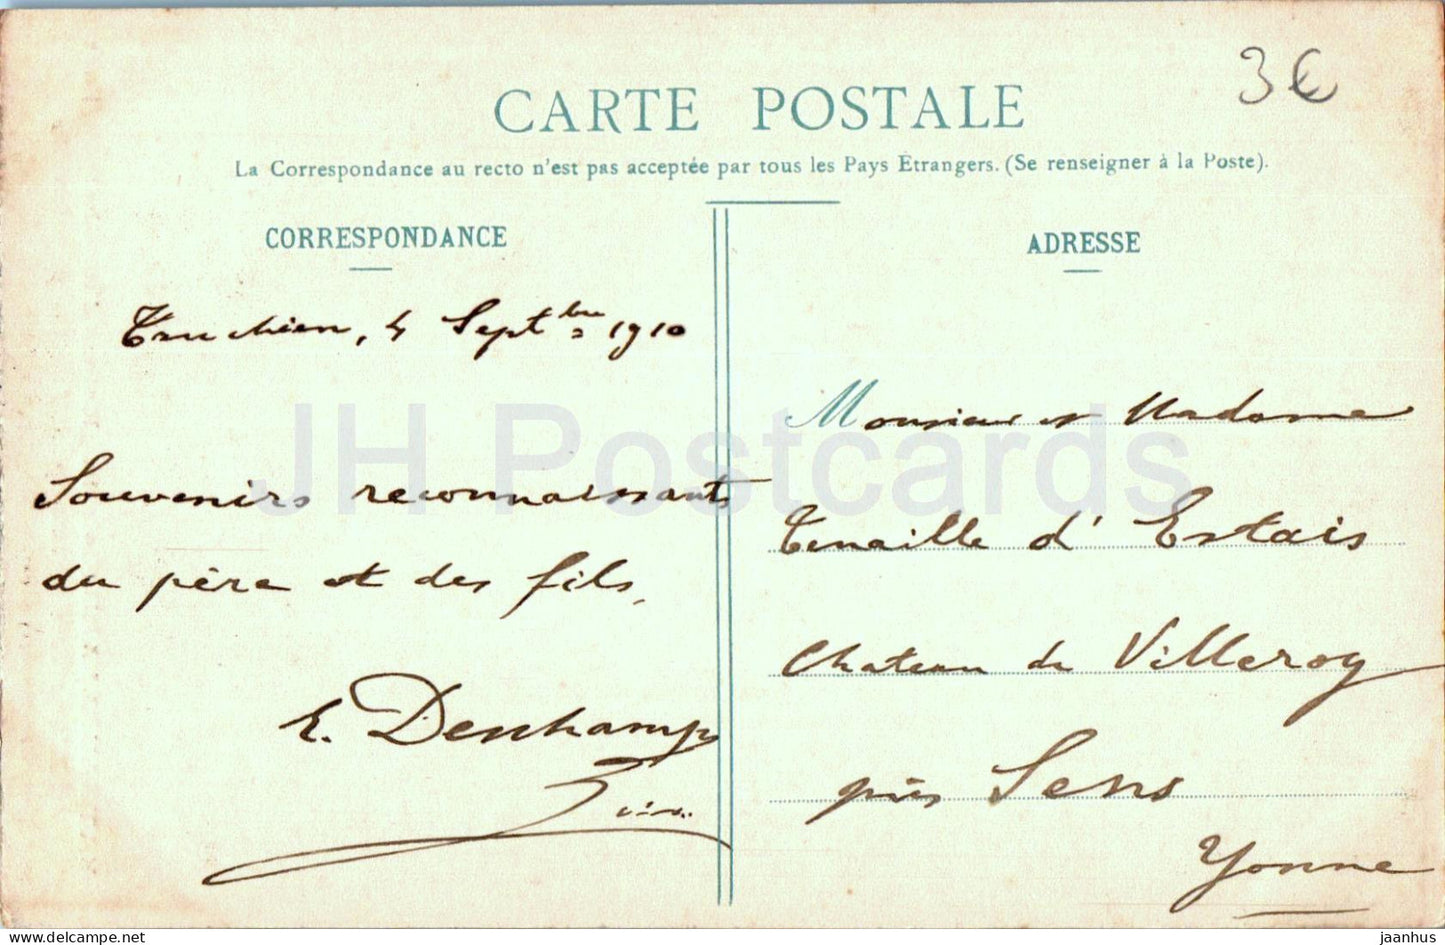 3€
CARTE POSTALE
La Correspondance au recto n'est pas acceptée par tous les Pays Étrangers. (Se renseigner à la Poste).
CORRESPONDANCE
ADRESSE
4 Septbre 1910
Souvenirs reconnaissants
du père et des fils,
E. Deschamps
Monsieur et Madame
Tenaille d'Estais
Chateau de Villeroy
près Sens
Yonne
JH Postcards
delcampe.net
jaanhus